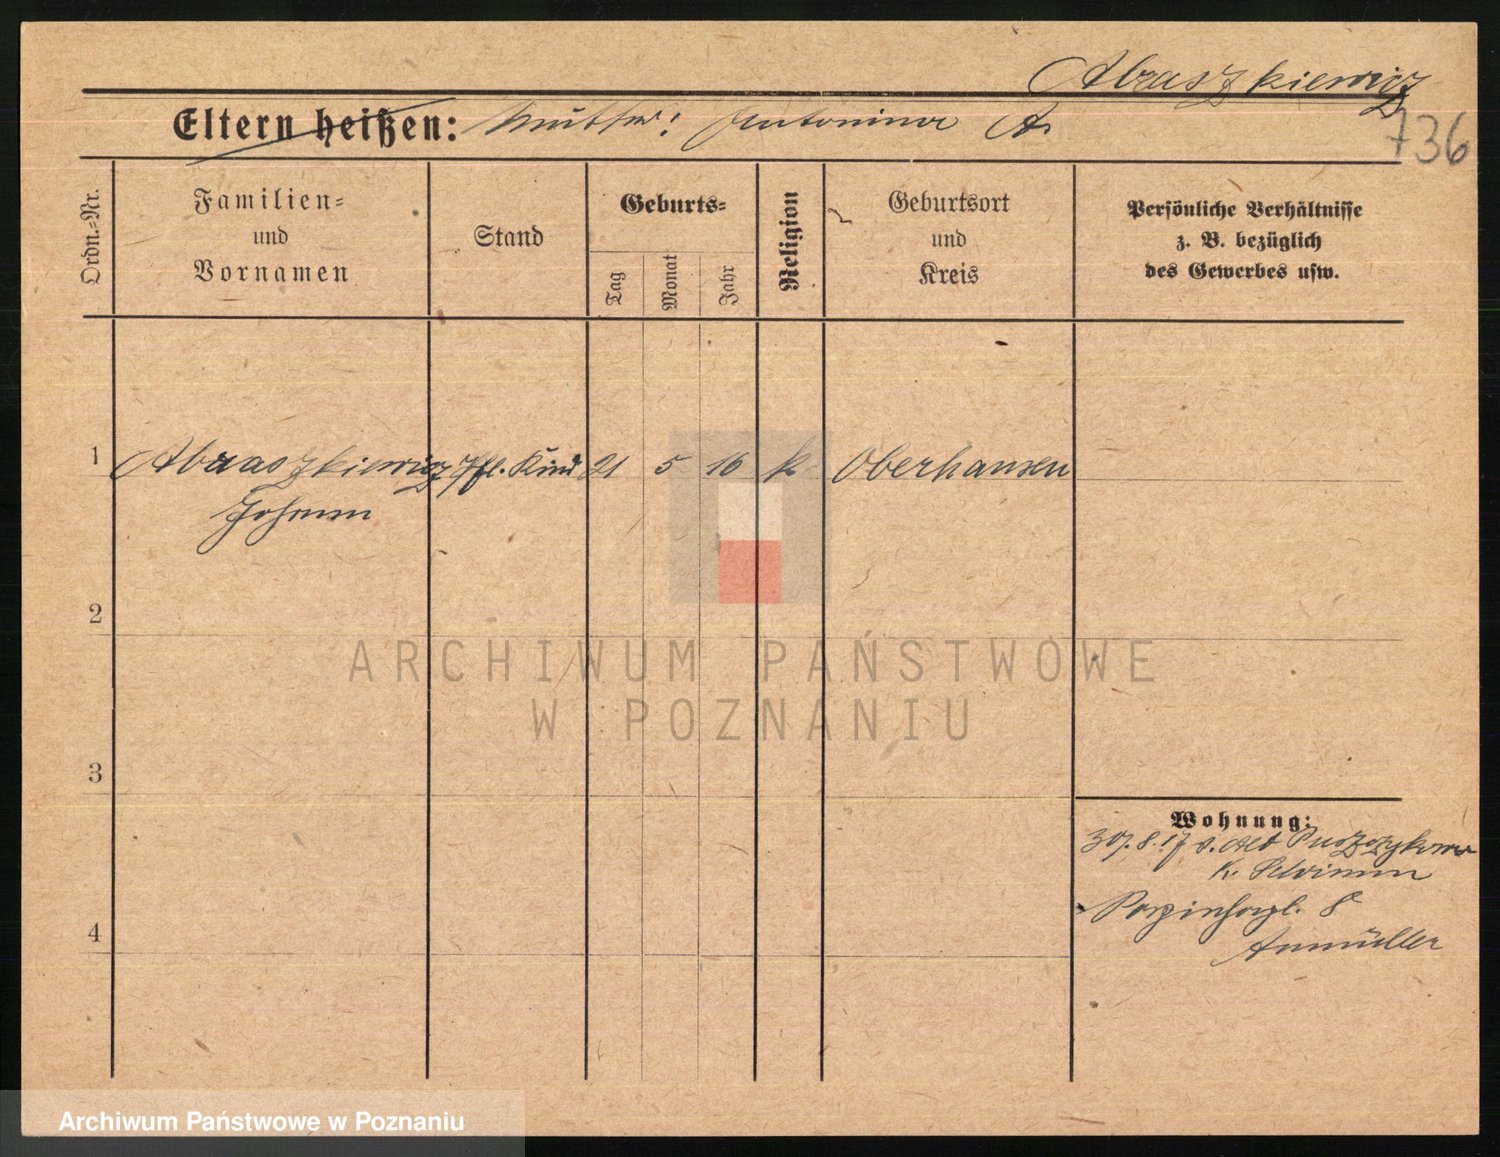 Abraszkiewicz
Eltern heißen: Mutter: Antonina A.
736
Ordn.-Nr.
Familien-
und
Vornamen
Stand
Geburts-
Tag
Monat
Jahr
Religion
Geburtsort
und
Kreis
Persönliche Verhältnisse
z. B. bezüglich
des Gewerbes usw.
1 Abraszkiewicz Pfl. Kind 21 5 16 k Oberhausen
Johann
2
ARCHIWUM PAŃSTWOWE
W POZNANIU
3
Wohnung:
30.8.17 Alt Puszczykowo
K.
8
4
Archiwum Państwowe w Poznaniu